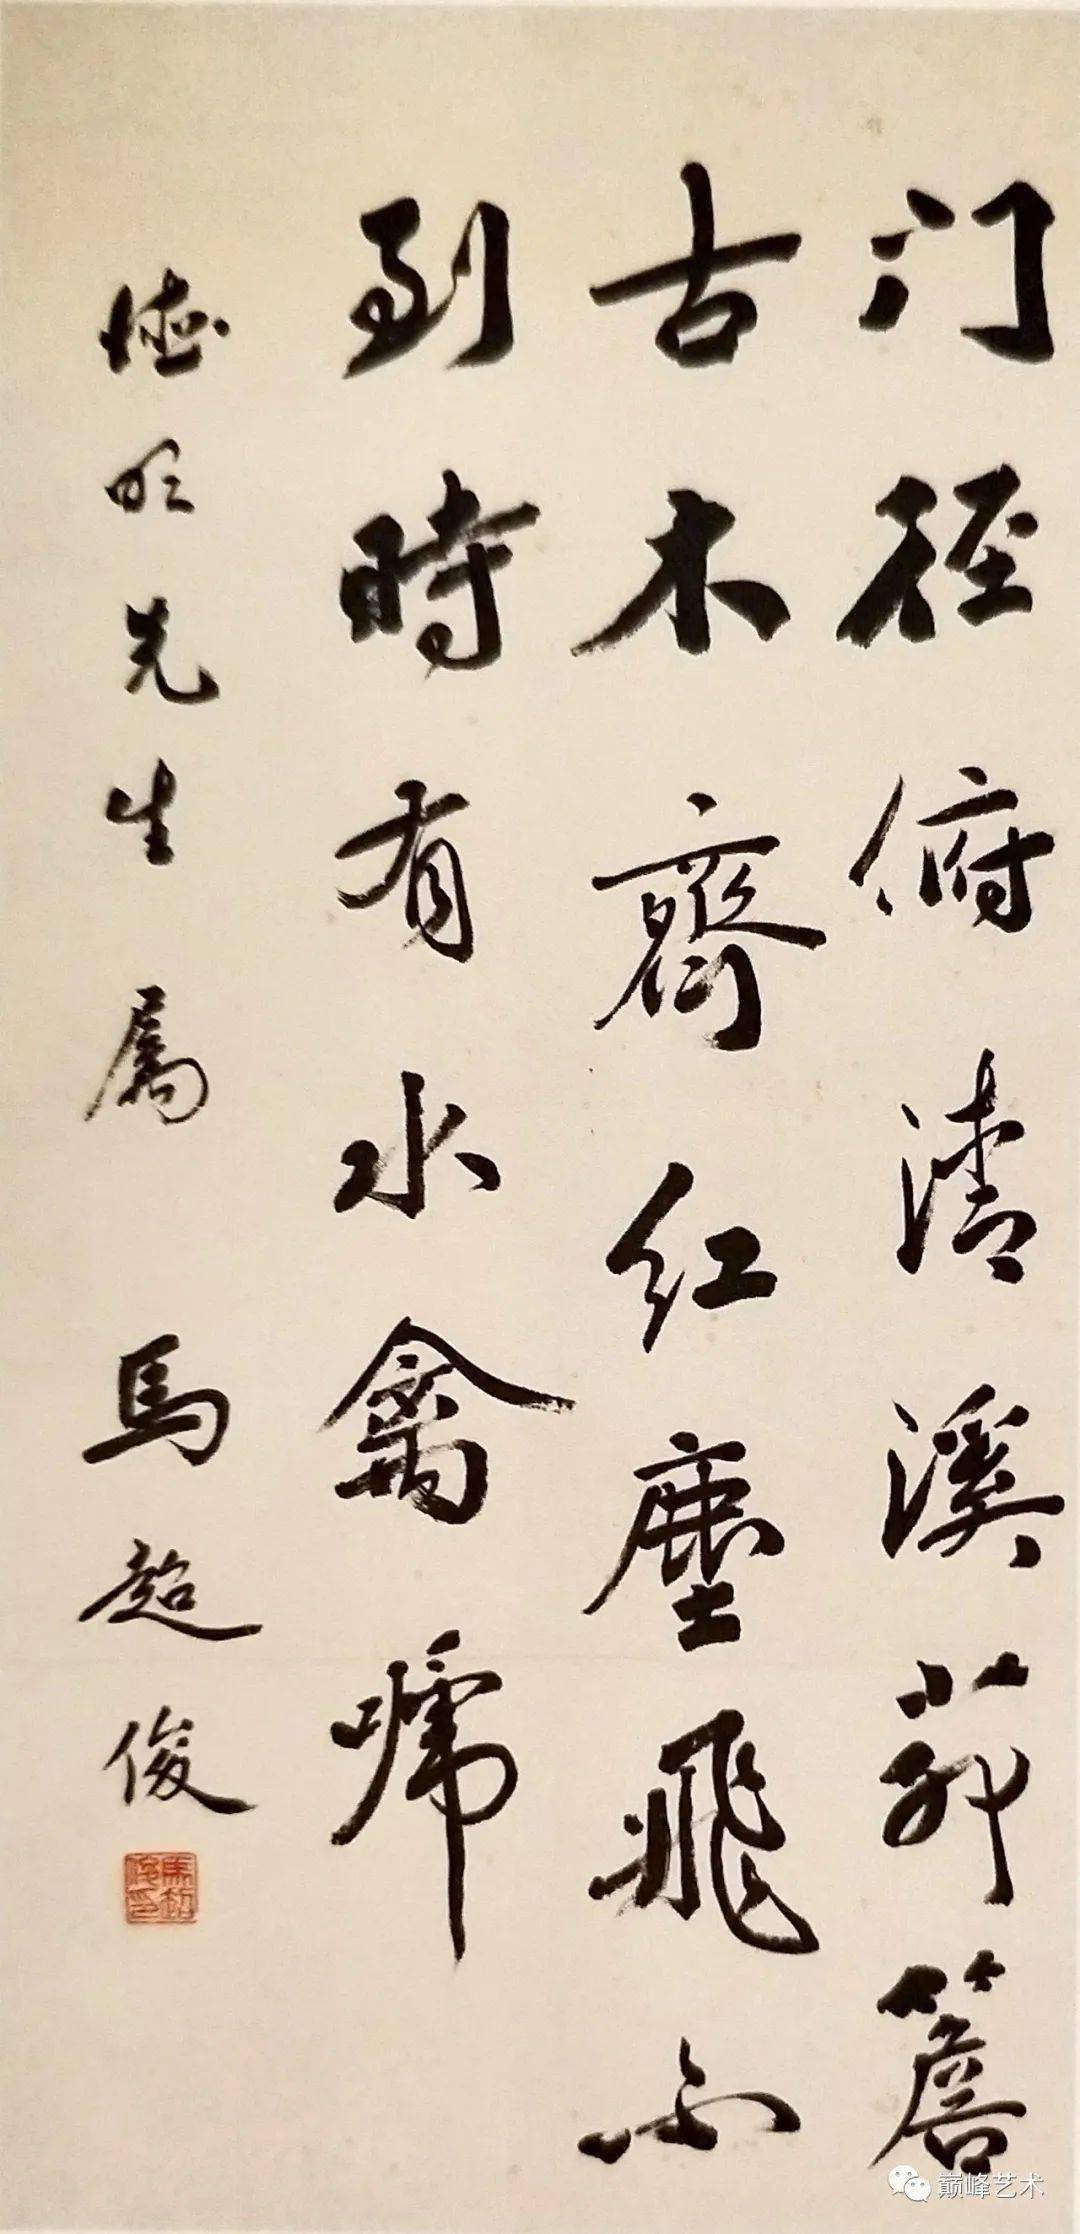 门径俯清溪茆簷
古木齊红塵飛不
到時有水禽啼
德明先生属 馬超俊
馬超俊印
巅峰艺术